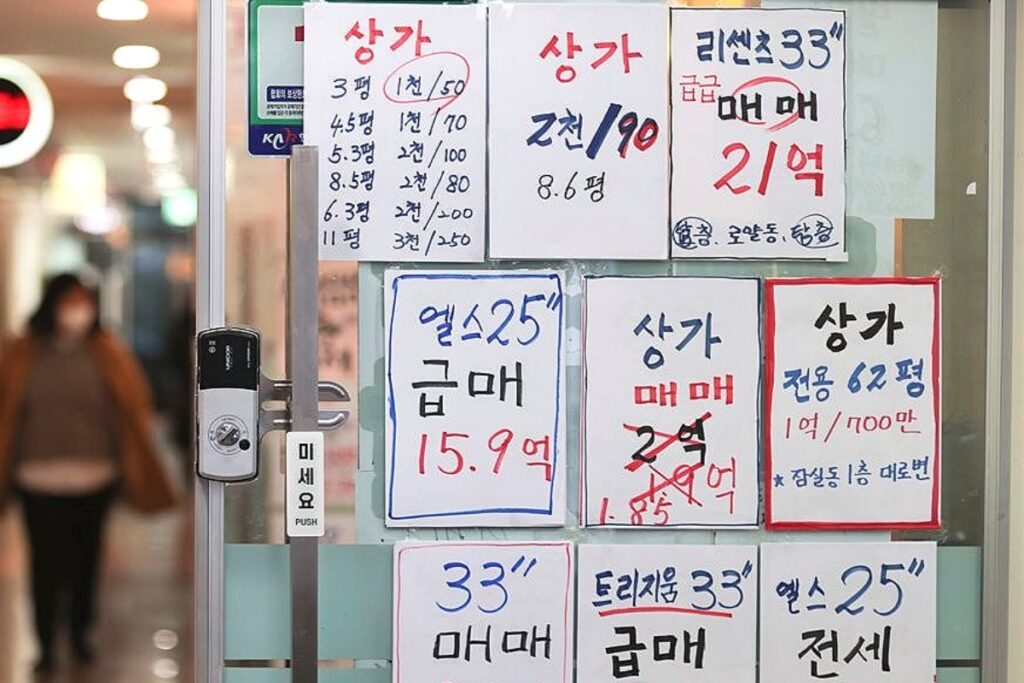 상가
3평 1천/50
4.5평 1천/70
5.3평 2천/100
8.5평 2천/80
6.3평 2천/200
11평 3천/250
상가
2천/90
8.6평
리센츠 33"
급급
매매
21억
로얄동, 탑층
엘스 25"
급매
15.9억
상가
매매
2억
1.9억
1.85
상가
전용 62평
1억/700만
* 잠실동 1층 대로변
33"
매매
트리지움 33"
급매
엘스 25"
전세
미세요
PUSH